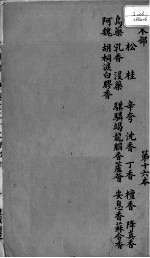 木部
第十六本
松　桂　辛夷　沈香　丁香　檀香　降真香
烏藥　乳香　沒藥　騏驎竭　龍腦香　蘆薈　安息香　蘇合香
阿魏　胡桐淚　白膠香